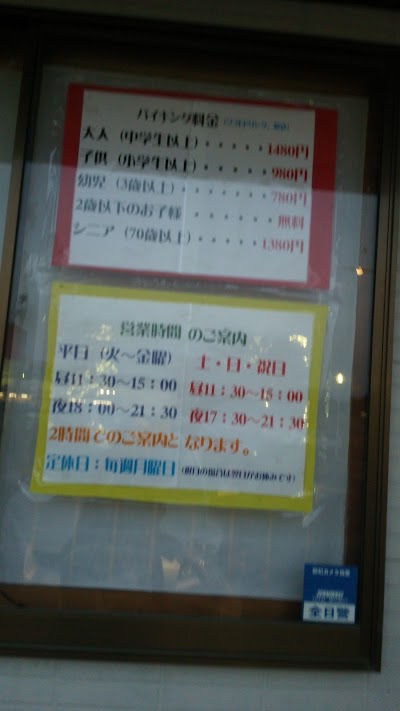 バイキング料金
大人（中学生以上）・・・・・1480円
子供（小学生以上）・・・・・980円
幼児（3歳以上）・・・・・・・780円
2歳以下のお子様 ・・・・・・無料
シニア（70歳以上）・・・・・1380円
営業時間 のご案内
平日（火～金曜）
昼11：30～15：00
夜18：00～21：30
土・日・祝日
昼11：30～15：00
夜17：30～21：30
2時間でのご案内と なります。
定休日：毎週月曜日
全日警